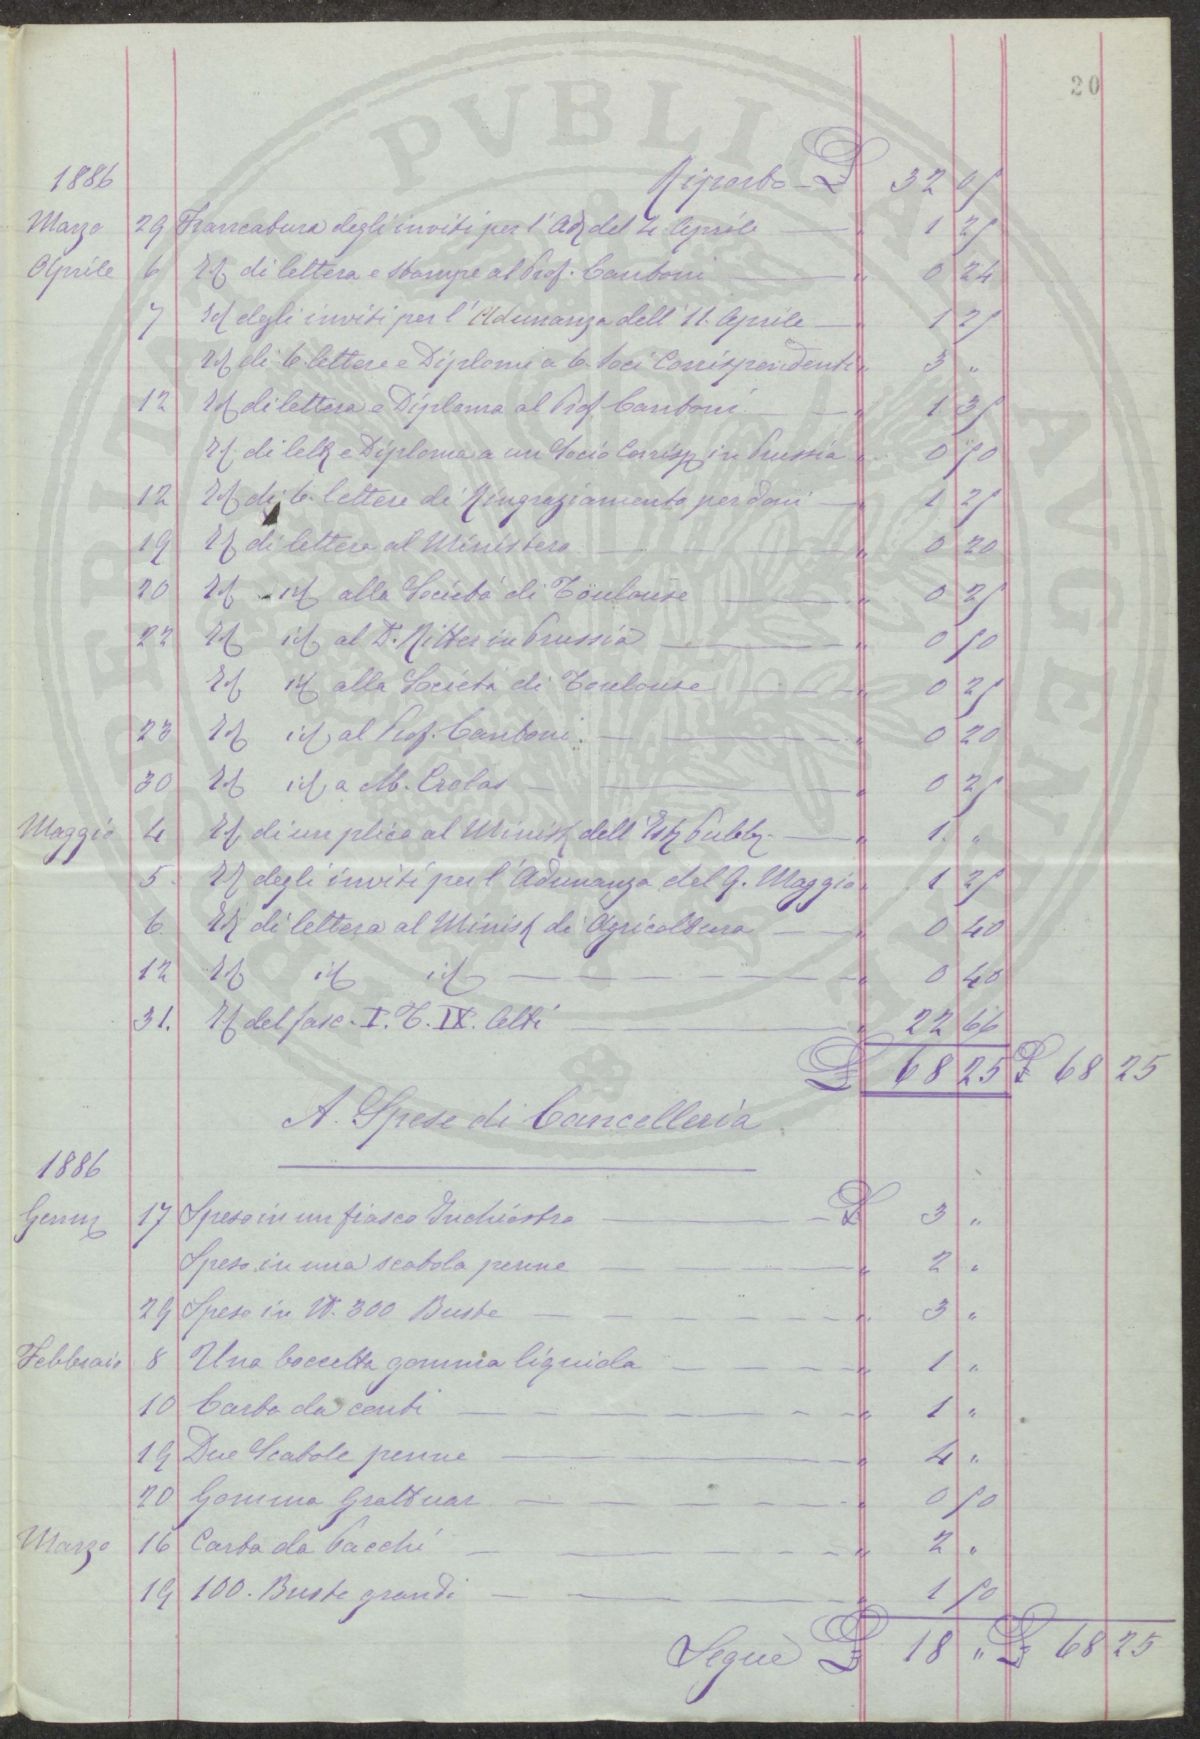 20
1886 Riporto £ 32 05
Marzo 29 Francatura degli inviti per l'Adz del 4 Aprile " 1 25
Aprile 6 Id di lettera e stampe al Prof. Cantoni " 0 24
7 Id degli inviti per l'Adunanza dell'11. Aprile " 1 25
Id di 6 lettere e Diplomi a 6 Soci Corrispondenti " 3 "
12 Id di lettera e Diploma al Prof Cantoni " 1 35
Id di lett e Diploma a un Socio Corrisp in Prussia " 0 50
12 Id di 6 lettere di Ringraziamento per doni " 1 25
19 Id di lettera al Ministero " 0 20
20 Id id alla Società di Toulouse " 0 25
22 Id id al D. Ritter in Prussia " 0 50
Id id alla Società di Toulouse " 0 25
23 Id id al Prof. Cantoni " 0 20
30 Id id a M. Crolas " 0 25
Maggio 4 Id di un plico al Minist dell'Ist Pubb " 1. "
5. Id degli inviti per l'Adunanza del 9. Maggio " 1 25
6 Id di lettera al Minist di Agricoltura " 0 40
12 Id id id " 0 40
31. Id del fasc. I. T. IX. Atti " 22 66
£ 68 25 £ 68 25
A. Spese di Cancelleria
1886
Genn 17 Speso in un fiasco Inchiostro £ 3 "
Speso in una scatola penne " 2 "
29 Speso in N. 300 Buste " 3 "
Febbraio 8 Una boccetta gomma liquida " 1 "
10 Carta da conti " 1 "
19 Due Scatole penne " 4 "
20 Gomma Grattuar " 0 50
Marzo 16 Carta da Pacchi " 2 "
19 100. Buste grandi " 1 50
Segue £ 18 " £ 68 25
PVBLICA
AVGENTA